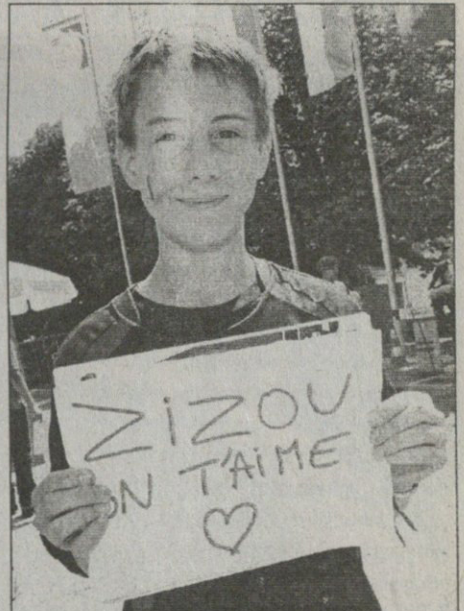 ZiZOU
ON T'AiME